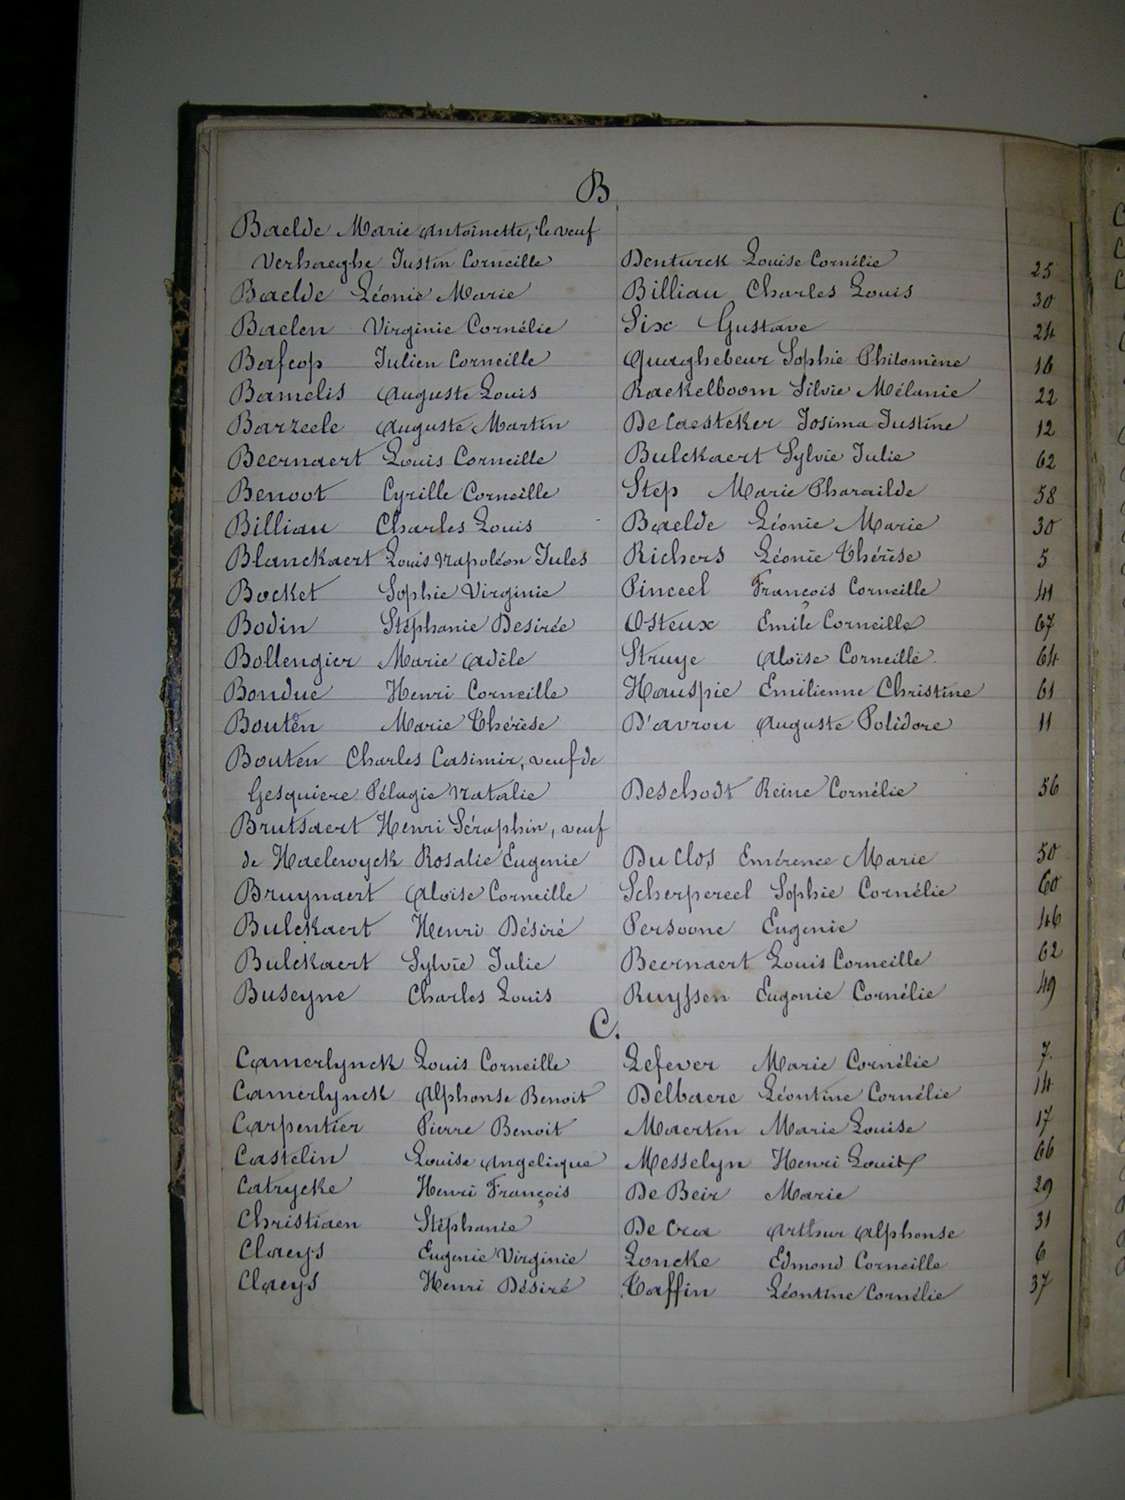 B
Baelde Marie Antoinette, le veuf
Verhaeghe Justin Corneille Denturck Louise Cornélie 25
Baelde Léonie Marie Billiau Charles Louis 30
Baelen Virginie Cornélie Six Gustave 24
Bafcop Julien Corneille Quaghebeur Sophie Philomène 16
Bamelis Auguste Louis Raekelboom Silvie Mélanie 22
Barzeele Auguste Martin De Caesteker Josima Justine 12
Beernaert Louis Corneille Bulckaert Sylvie Julie 62
Benoot Cyrille Corneille Step Marie Pharaïlde 58
Billiau Charles Louis Baelde Léonie Marie 30
Blanckaert Louis Napoléon Jules Richers Léonie Thérèse 5
Bocket Sophie Virginie Pinceel François Corneille 41
Bodin Stéphanie Desirée Osteux Emile Corneille 67
Bollengier Marie Adèle Struye Aloïse Corneille 64
Bonduc Henri Corneille Hauspie Emilienne Christine 61
Bouten Marie Thérèse D'avrou Auguste Polidore 11
Bouten Charles Casimir, veuf de
Gesquiere Pélagie Natalie Deschodt Reine Cornélie 56
Brutsaert Henri Séraphin, veuf
de Haelewyck Rosalie Eugenie Du Clos Emérence Marie 50
Bruynaert Aloïse Corneille Scherpereel Sophie Cornélie 60
Bulckaert Henri Désiré Persoone Eugenie 46
Bulckaert Sylvie Julie Beernaert Louis Corneille 62
Buseyne Charles Louis Ruyssen Eugenie Cornélie 49
C.
Camerlynck Louis Corneille Lefever Marie Cornélie 7
Camerlynck Alphonse Benoit Delbaere Léontine Cornélie 14
Carpentier Pierre Benoit Maerten Marie Louise 17
Castelin Louise Angelique Messelyn Henri Louis 66
Catrycke Henri François De Beir Marie 29
Christiaen Stéphanie De Cra Arthur Alphonse 31
Claeys Eugenie Virginie Loncke Edmond Corneille 6
Claeys Henri Désiré Taffin Léontine Cornélie 37